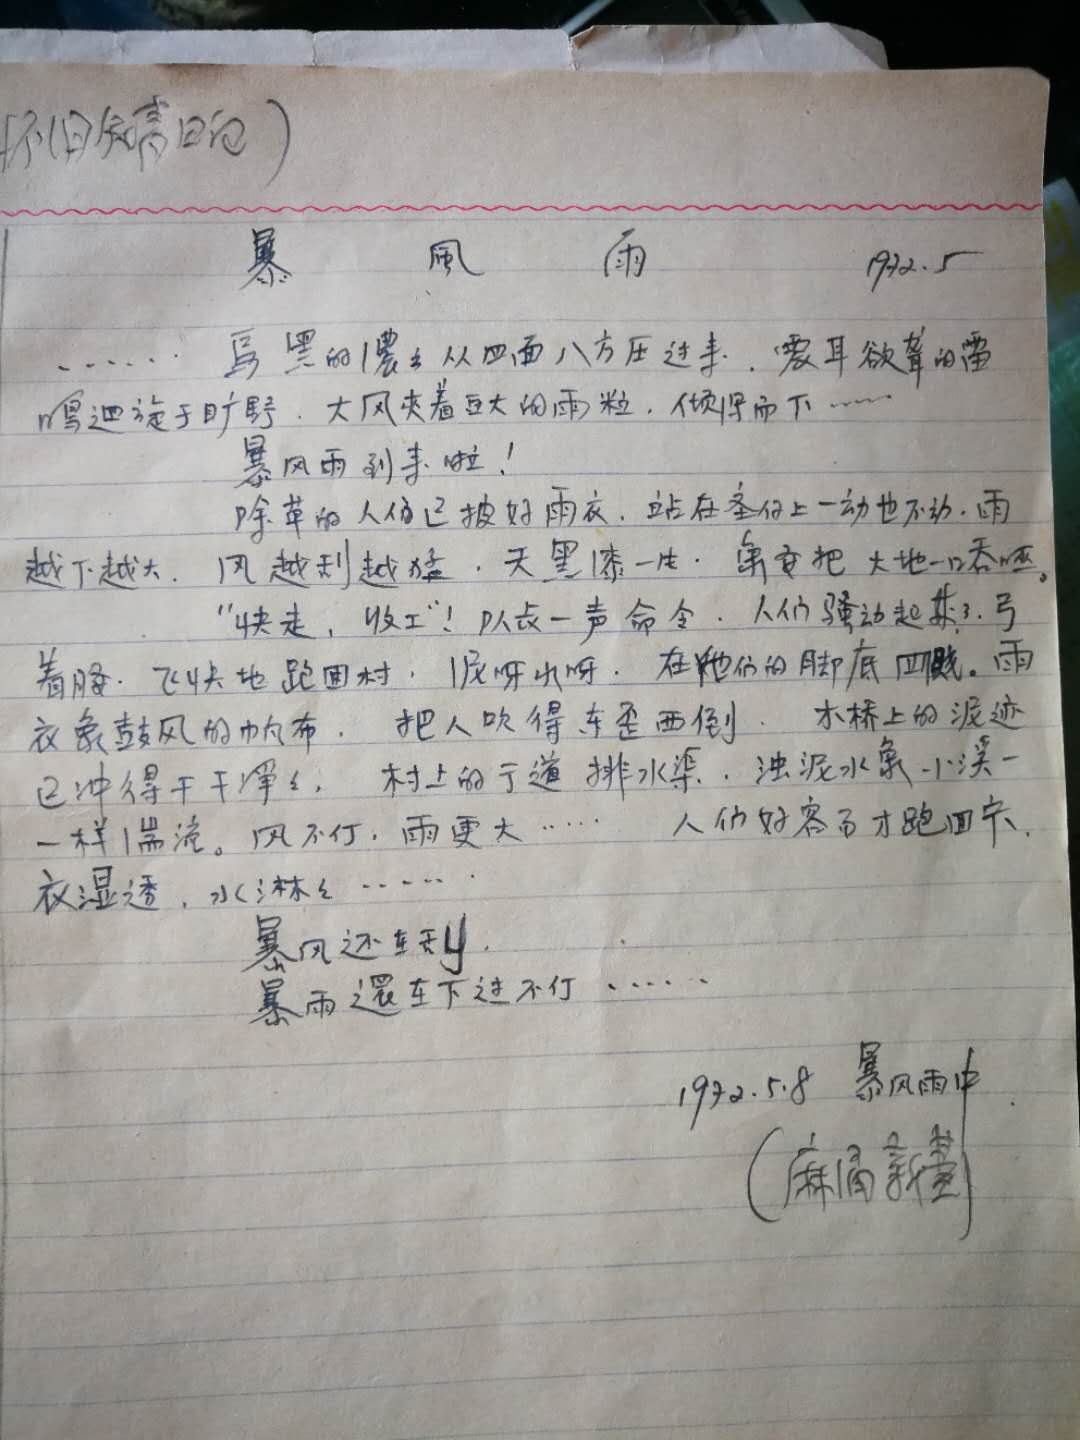 怀旧知青日记)
暴 風 雨 1972.5
…… 烏黑的濃云从四面八方压过来. 震耳欲聋的雷
鸣迴旋于旷野. 大风夹着豆大的雨粒. 倾浔而下……
暴风雨到来啦!
除草的人们已披好雨衣. 站在垄行上一动也不动. 雨
越下越大. 风越刮越猛. 天黑漆一片. 象要把大地一口吞噬。
"快走, 收工"! 队长一声命令. 人们骚动起来了. 弓
着腰. 飞快地跑回村. 泥呀水呀. 在她们的脚底四溅。雨
衣象鼓风的帆布. 把人吹得东歪西倒. 木桥上的泥迹
已冲得干干净々. 村上的 道排水渠. 浊泥水象小溪一
一样湍流。风不停. 雨更大…… 人们好容易才跑回家.
衣湿透. 水淋々…….
暴风还在刮.
暴雨還在下过不停……
1972.5.8 暴风雨中
(麻涌新